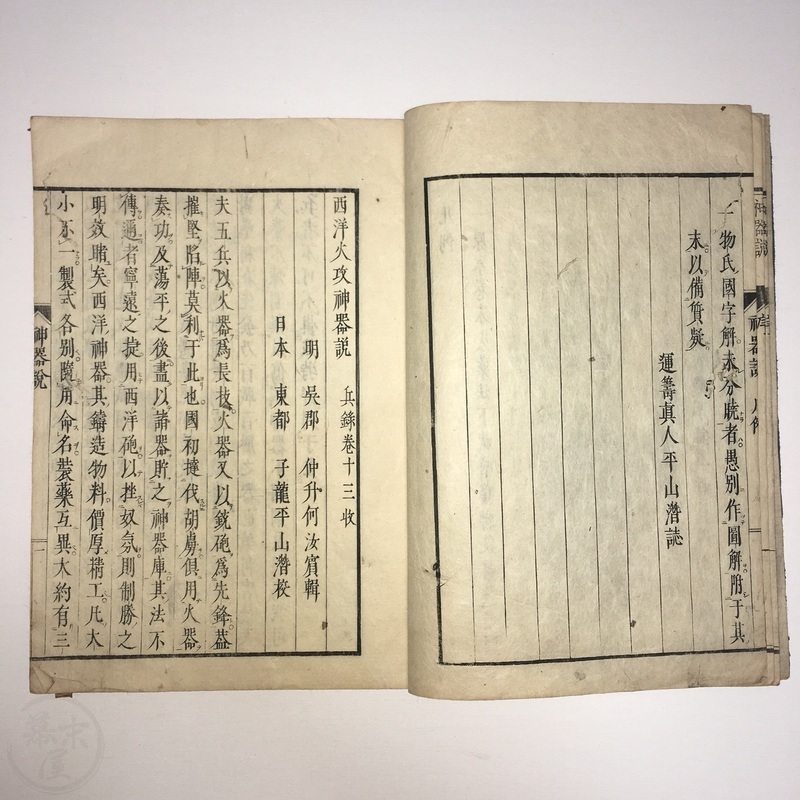 一物氏國字解未分曉者愚別作圖解附于其
末以備質疑
運籌真人平山潛誌
神器說
西洋火攻神器說　兵錄卷十三收
明　吳郡　仲升何汝賓輯
日本　東都　子龍平山潛校
夫五兵以火器爲長技火器又以銃砲爲先鋒蓋
摧堅陷陣莫利于此也國初撻伐胡虜俱用火器
奏功及蕩平之後盡以諸器貯之神器庫其法不
傳邇者寧遠之捷用西洋砲以挫奴氛則制勝之
明效睹矣西洋神器其鑄造物料價厚精工凡大
小不一製式各別隨用命名裝藥互異大約有三
神器說